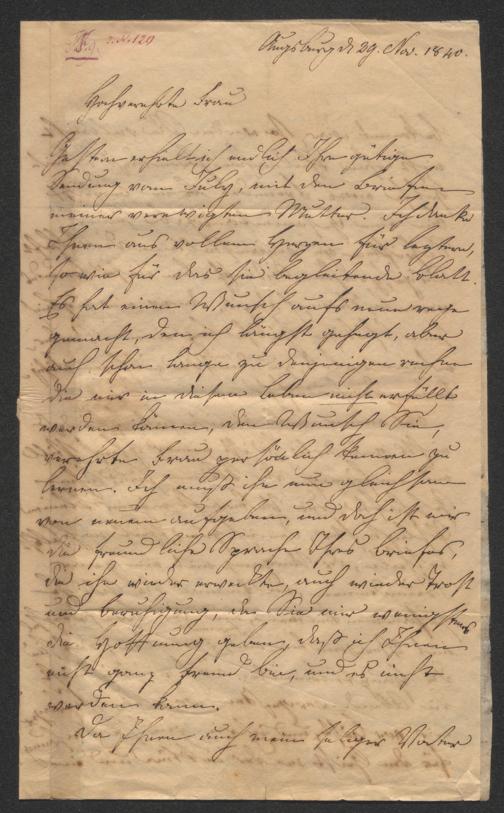 129
Augsburg d 29. Nov. 1840.
Hochverehrte Frau
Gestern erhielt ich endlich Ihre gütige
Sendung vom July, mit den Briefen
meiner verewigten Mutter. Ich danke
Ihnen aus vollem Herzen für letztere,
so wie für das sie begleitende Blatt.
Es hat einen Wunsch aufs neue rege
gemacht, den ich längst gehegt, aber
auch schon lange zu denjenigen
die mir in diesem Leben nicht erfüllt
werden können, den Wunsch Sie,
verehrte Frau persönlich kennen zu
lernen. Ich muß ihn nun gleichsam
von neuem aufgeben, und doch ist mir
die freundliche Sprache Ihres Briefes,
die ihn wieder erweckte, auch wieder Trost
und Beruhigung, da Sie mir wenigstens
die Hoffnung geben, daß ich Ihnen
nicht ganz fremd bin, und es nicht
werden kann.
Da Ihnen auch mein seliger Vater